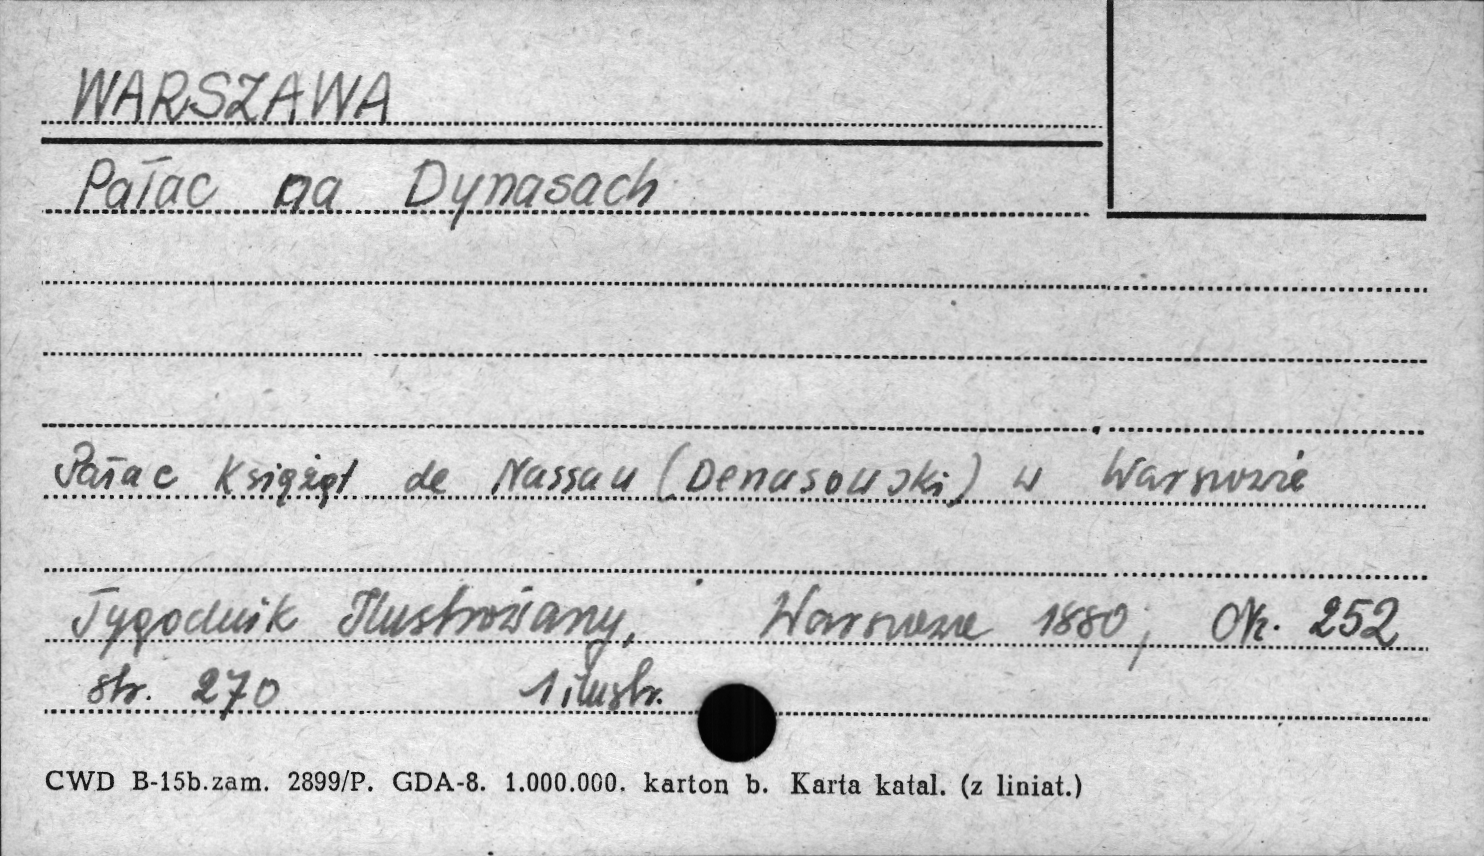 WARSZAWA
Pałac na Dynasach
Pałac Książąt de Nassau (Denasowski) w Warszawie
Tygodnik Ilustrowany, Warszawa 1880, Nr. 252
str. 270 1 ilustr.
CWD B-15b.zam. 2899/P. GDA-8. 1.000.000. karton b. Karta katal. (z liniat.)